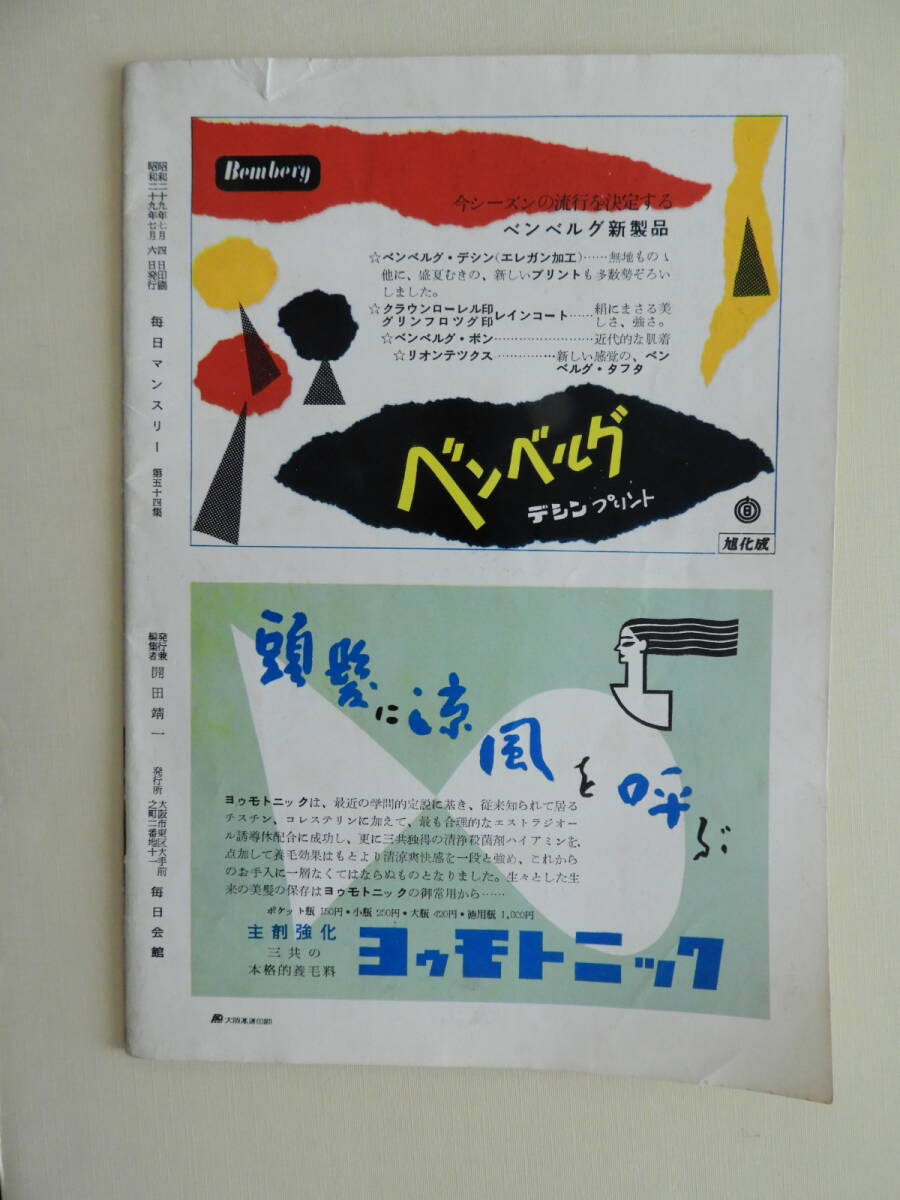 昭和二十九年七月四日印刷
昭和二十九年七月六日発行
毎日マンスリー 第五十四集
発行兼
編集者 開田靖一
発行所 大阪市東区大手前
之町二番地十一 毎日会館
Bemberg
今シーズンの流行を決定する
ベンベルグ新製品
☆ベンベルグ・デシン(エレガン加工)……無地ものゝ
他に、盛夏むきの、新しいプリントも多数勢ぞろい
しました。
☆クラウンローレル印
グリンフロツグ印 レインコート……絹にまさる美
しさ、強さ。
☆ベンベルグ・ボン……………………近代的な肌着
☆リオンテツクス……………新しい感覚の、ベン
ベルグ・タフタ
ベンベルグ
デシン プリント
旭化成
頭髪に涼風を呼ぶ
ヨゥモトニックは、最近の学問的定説に基き、従来知られて居る
チスチン、コレステリンに加えて、最も合理的なエストラジオー
ル誘導体配合に成功し、更に三共独得の清浄殺菌剤ハイアミンを
点加して養毛効果はもとより清涼爽快感を一段と強め、これから
のお手入に一層なくてはならぬものとなりました。生々とした生
来の美髪の保存はヨゥモトニックの御常用から……
ポケット瓶 150円・小瓶 250円・大瓶 420円・徳用瓶 1,000円
主剤強化
三共の
本格的養毛料
ヨゥモトニック